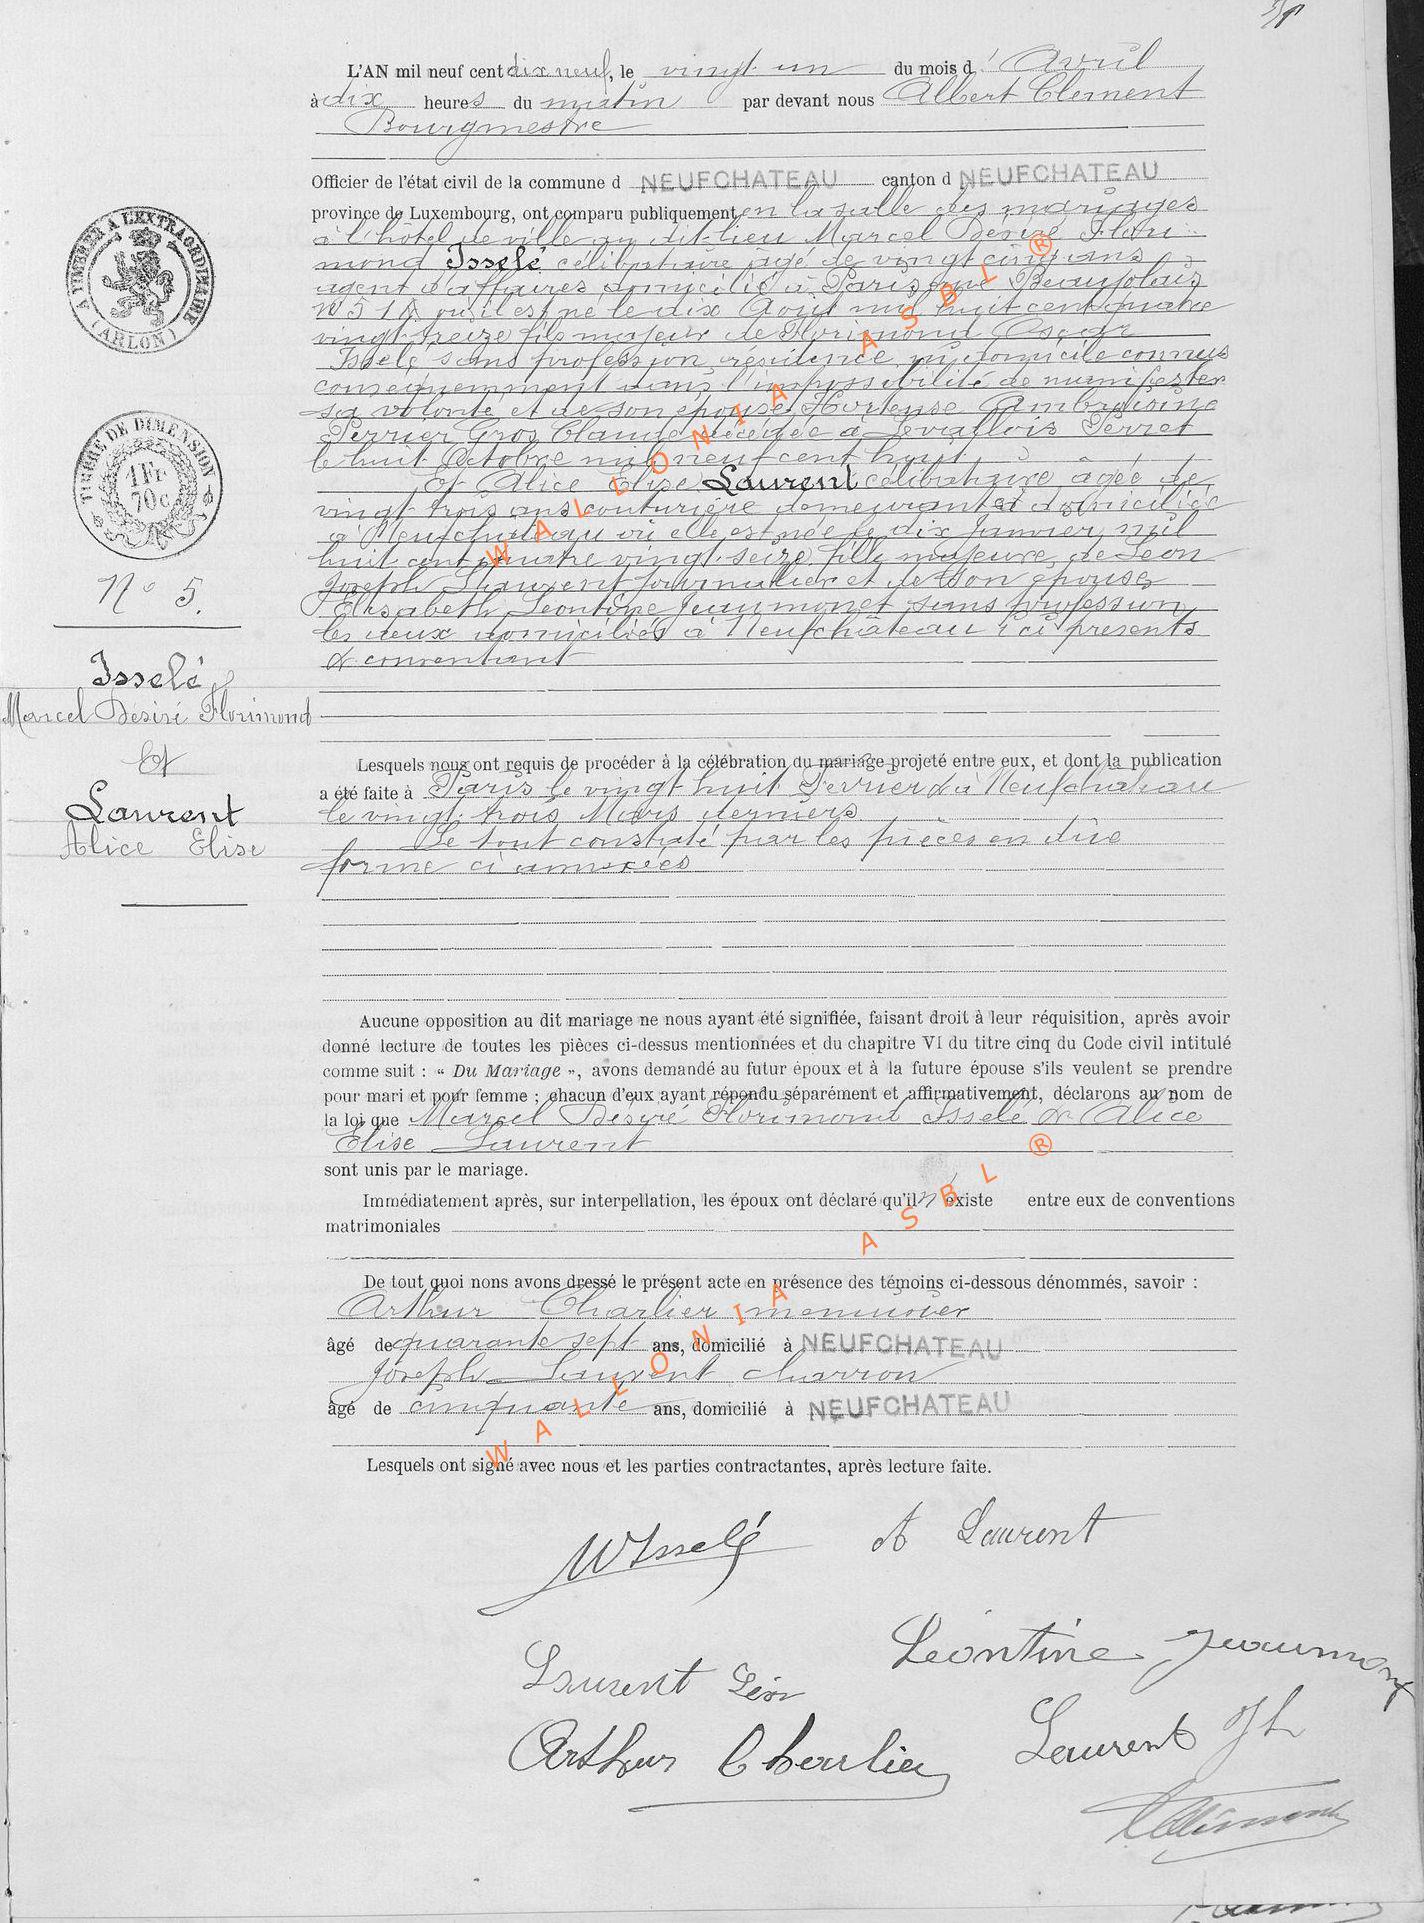 L'AN mil neuf cent dix neuf, le vingt un du mois d' Avril
à dix heures du matin par devant nous Albert Clement
Bourgmestre
Officier de l'état civil de la commune d NEUFCHATEAU canton d NEUFCHATEAU
province de Luxembourg, ont comparu publiquement en la salle des mariages
à l'hôtel de ville au dit lieu Marcel Désiré Flori
mond Isselé célibataire âgé de vingt cinq ans
agent d'affaires domicilié à Paris rue Beaujolais
N° 51 où il est né le dix Août mil huit cent quatre
vingt treize fils majeur de Florimond Oscar
Isselé sans profession résidence ni domicile connus
conséquemment dans l'impossibilité de manifester
sa volonté et de son épouse Hortense Ambroisine
Perrier Gros Claude décédée à Levallois Perret
le huit Octobre mil neuf cent huit
Et Alice Elise Laurent célibataire âgée de
vingt trois ans couturière demeurant et domiciliée
à Neufchâteau où elle est née le dix Janvier mil
huit cent quatre vingt seize fille majeure de Léon
Joseph Laurent journalier et de son épouse
Elisabeth Léontine Jeaumonet sans profession
les deux domiciliés à Neufchâteau ici présents
& consentant
A TIMBRER A L'EXTRAORDINAIRE
(ARLON)
TIMBRE DE DIMENSION
1 Fr.
70 c
N° 5.
Isselé
Marcel Désiré Florimond
Et
Laurent
Alice Elise
Lesquels nous ont requis de procéder à la célébration du mariage projeté entre eux, et dont la publication
a été faite à Paris le vingt huit Fevrier & à Neufchâteau
le vingt trois Mars derniers
Le tout constaté par les pièces en due
forme ci annexées
Aucune opposition au dit mariage ne nous ayant été signifiée, faisant droit à leur réquisition, après avoir
donné lecture de toutes les pièces ci-dessus mentionnées et du chapitre VI du titre cinq du Code civil intitulé
comme suit : « Du Mariage », avons demandé au futur époux et à la future épouse s'ils veulent se prendre
pour mari et pour femme ; chacun d'eux ayant répondu séparément et affirmativement, déclarons au nom de
la loi que Marcel Désiré Florimond Isselé & Alice
Elise Laurent
sont unis par le mariage.
Immédiatement après, sur interpellation, les époux ont déclaré qu'il n'existe entre eux de conventions
matrimoniales
De tout quoi nons avons dressé le présent acte en présence des témoins ci-dessous dénommés, savoir :
Arthur Charlier menuisier
âgé de quarante sept ans, domicilié à NEUFCHATEAU
Joseph Laurent charron
âgé de cinquante ans, domicilié à NEUFCHATEAU
Lesquels ont signé avec nous et les parties contractantes, après lecture faite.
MIsselé
A Laurent
Léontine Jeaumonet
Laurent Léon
Arthur Charlier
Laurent Jh
AClément
WALLONIA ASBL ®
WALLONIA ASBL ®